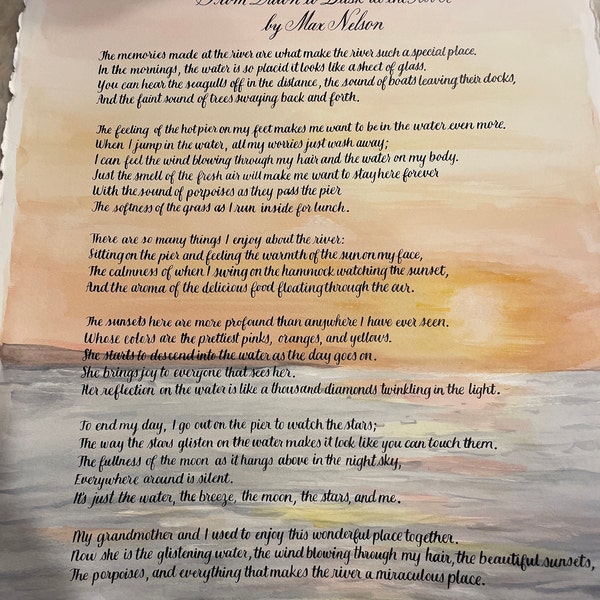 From Dawn to Dusk at the River
by Max Nelson
The memories made at the river are what make the river such a special place.
In the mornings, the water is so placid it looks like a sheet of glass.
You can hear the seagulls off in the distance, the sound of boats leaving their docks,
And the faint sound of trees swaying back and forth.
The feeling of the hot pier on my feet makes me want to be in the water even more.
When I jump in the water, all my worries just wash away;
I can feel the wind blowing through my hair and the water on my body.
Just the smell of the fresh air will make me want to stay here forever
With the sound of porpoises as they pass the pier
The softness of the grass as I run inside for lunch.
There are so many things I enjoy about the river:
Sitting on the pier and feeling the warmth of the sun on my face,
The calmness of when I swing on the hammock watching the sunset,
And the aroma of the delicious food floating through the air.
The sunsets here are more profound than anywhere I have ever seen.
Whose colors are the prettiest pinks, oranges, and yellows.
She starts to descend into the water as the day goes on.
She brings joy to everyone that sees her.
Her reflection on the water is like a thousand diamonds twinkling in the light.
To end my day, I go out on the pier to watch the stars;
The way the stars glisten on the water makes it look like you can touch them.
The fullness of the moon as it hangs above in the night sky,
Everywhere around is silent.
It's just the water, the breeze, the moon, the stars, and me.
My grandmother and I used to enjoy this wonderful place together.
Now she is the glistening water, the wind blowing through my hair, the beautiful sunsets,
The porpoises, and everything that makes the river a miraculous place.